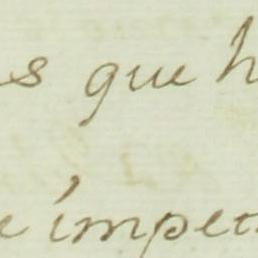 s que h
e impet